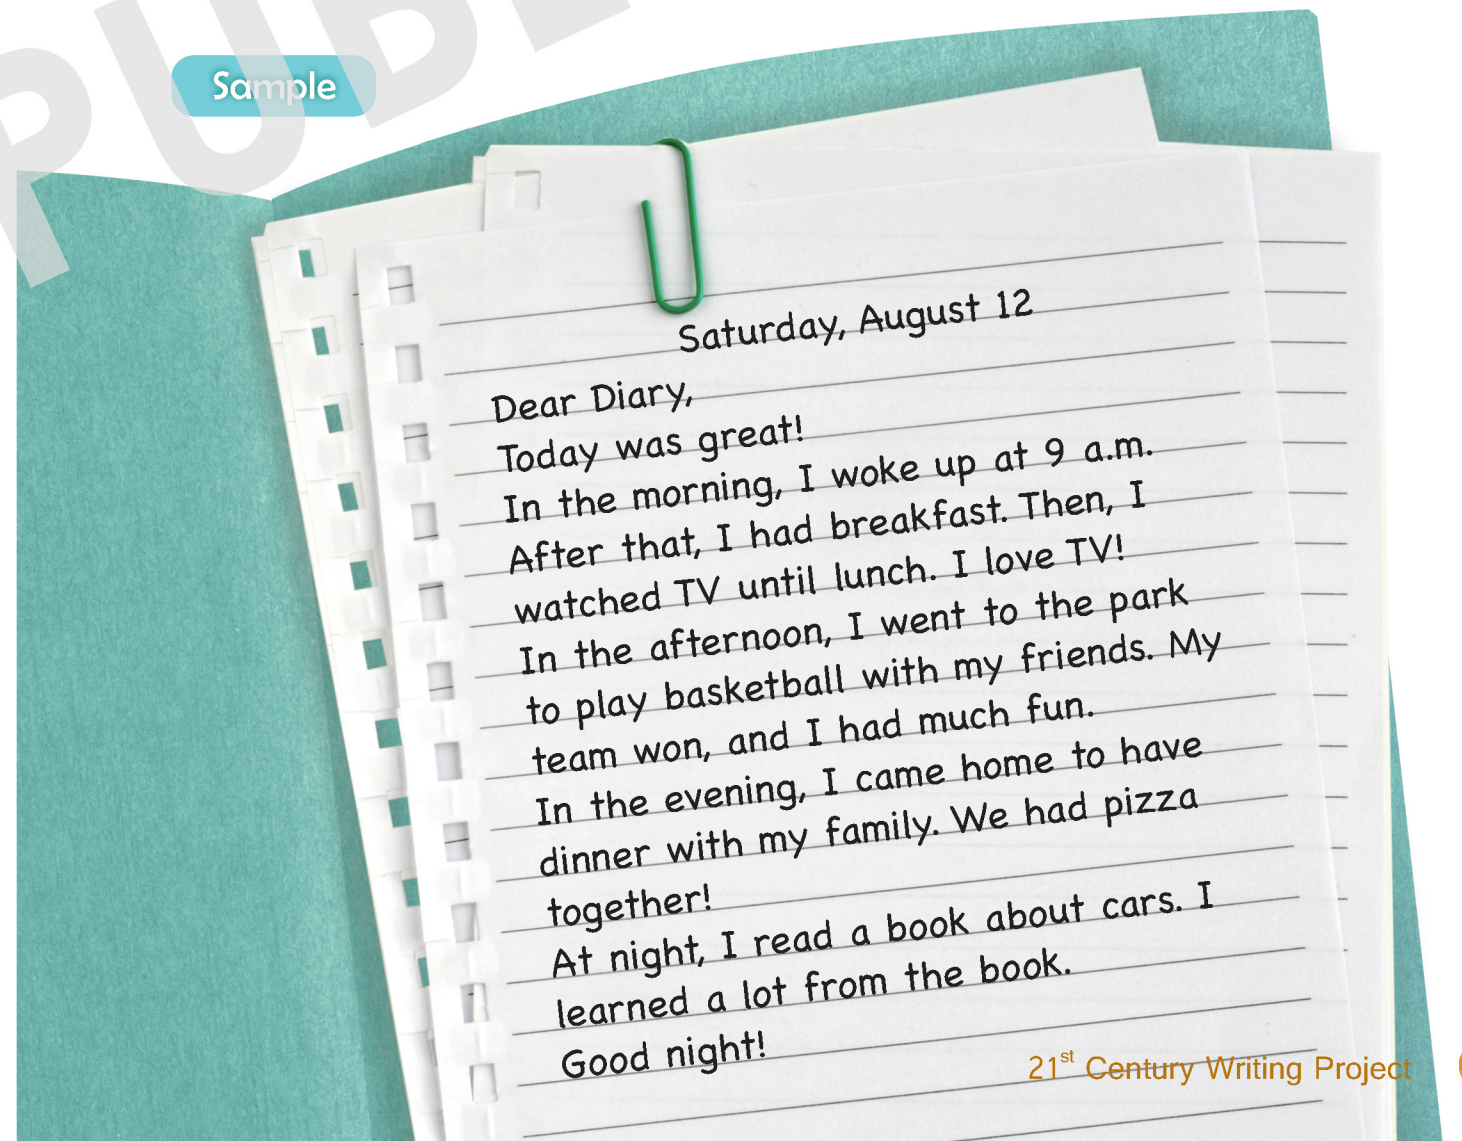 Sample
Saturday, August 12
Dear Diary,
Today was great!
In the morning, I woke up at 9 a.m.
After that, I had breakfast. Then, I
watched TV until lunch. I love TV!
In the afternoon, I went to the park
to play basketball with my friends. My
team won, and I had much fun.
In the evening, I came home to have
dinner with my family. We had pizza
together!
At night, I read a book about cars. I
learned a lot from the book.
Good night!
21st Century Writing Project